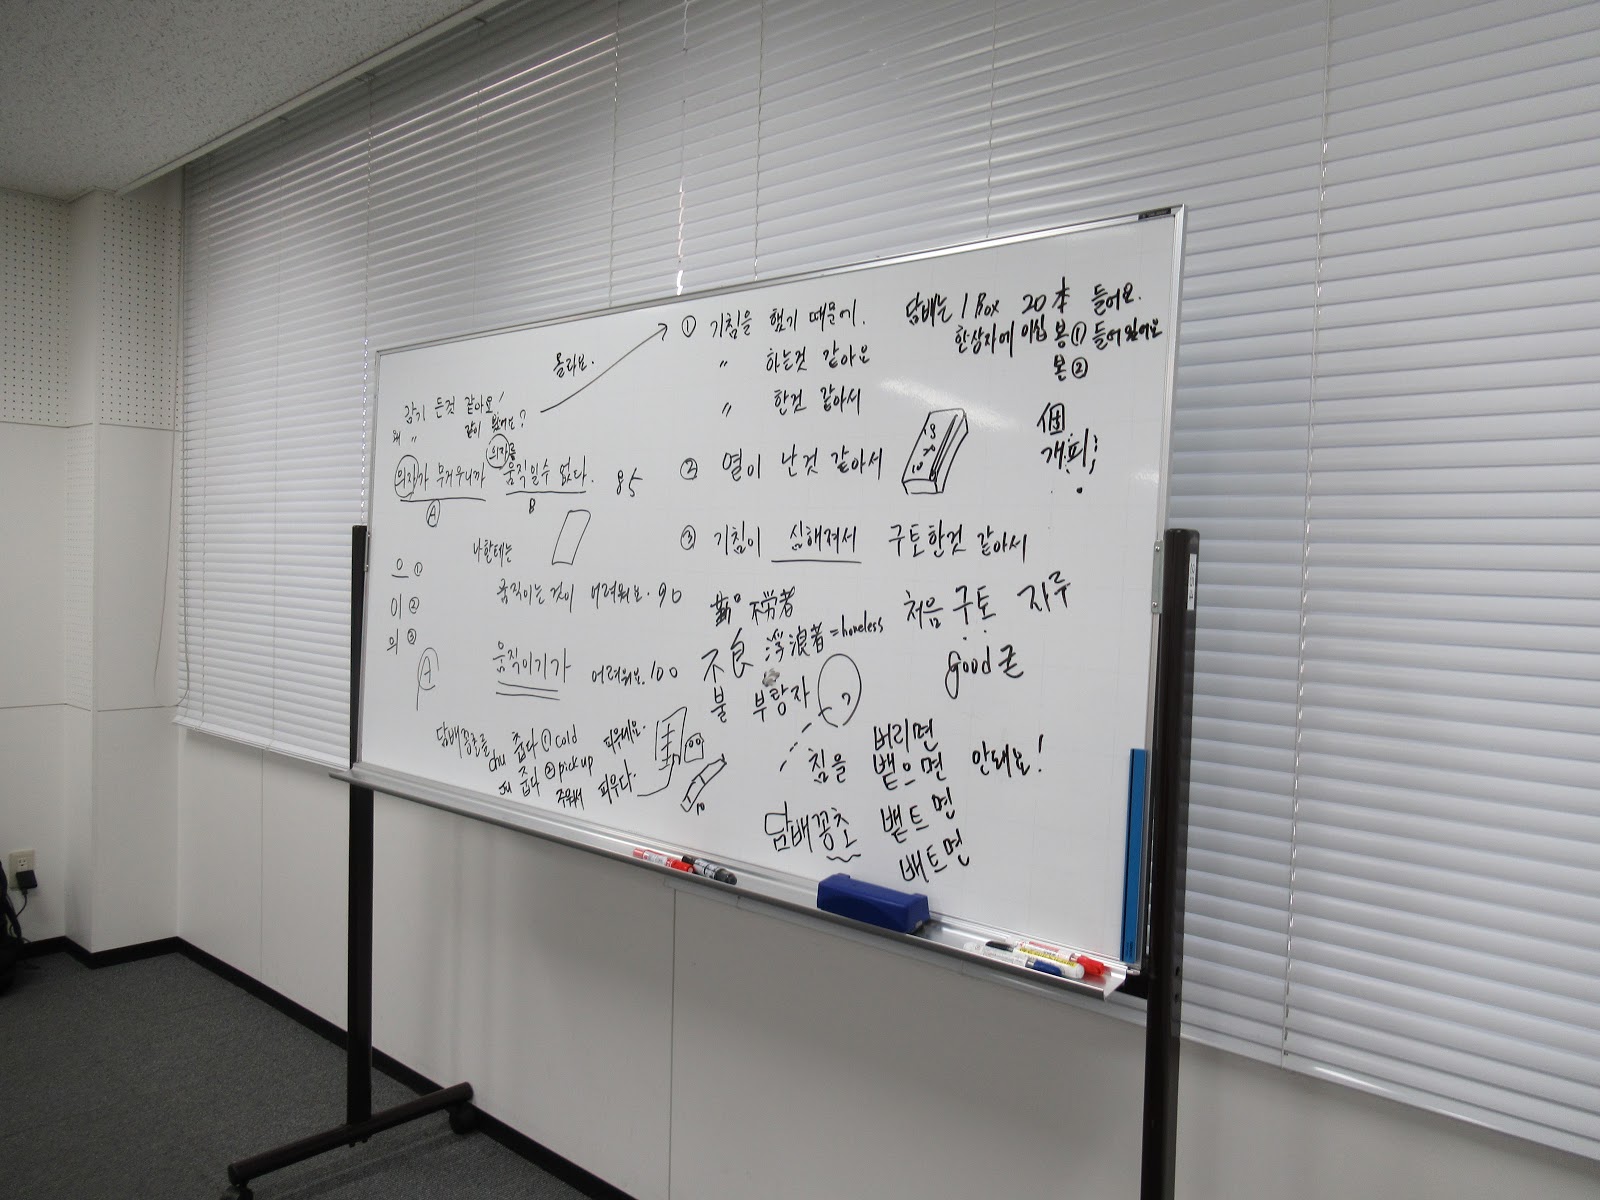 올라요.
감기 든것 같아요!
왜 〃 같이 봤어요?
의자를
의자가 무거우니까 움직일수 없다. 85
Ⓐ B
나한테는
움직이는것이 어려워요. 90
으 ①
이 ②
의 ③
A
움직이기가 어려워요. 100
담배꽁초를
chu 춥다 ① cold 피우세요.
줍다 ② pick up
주워서 피우다.
10
① 기침을 했기 때문에.
〃 하는것 같아요
〃 한것 같아서
② 열이 난것 같아서
③ 기침이 심해져서 구토한것 같아서
담배는 1 Box 20本 들어요.
한상자에 이십 봉① 들어있어요
본②
個
개피!
不労者
不良 浮浪者 = homeless
불 부랑자 ?
처음 구토 자주
Good 굳
버리면
침을 뱉으면 안돼요!
담배꽁초 뱉트면
배트면